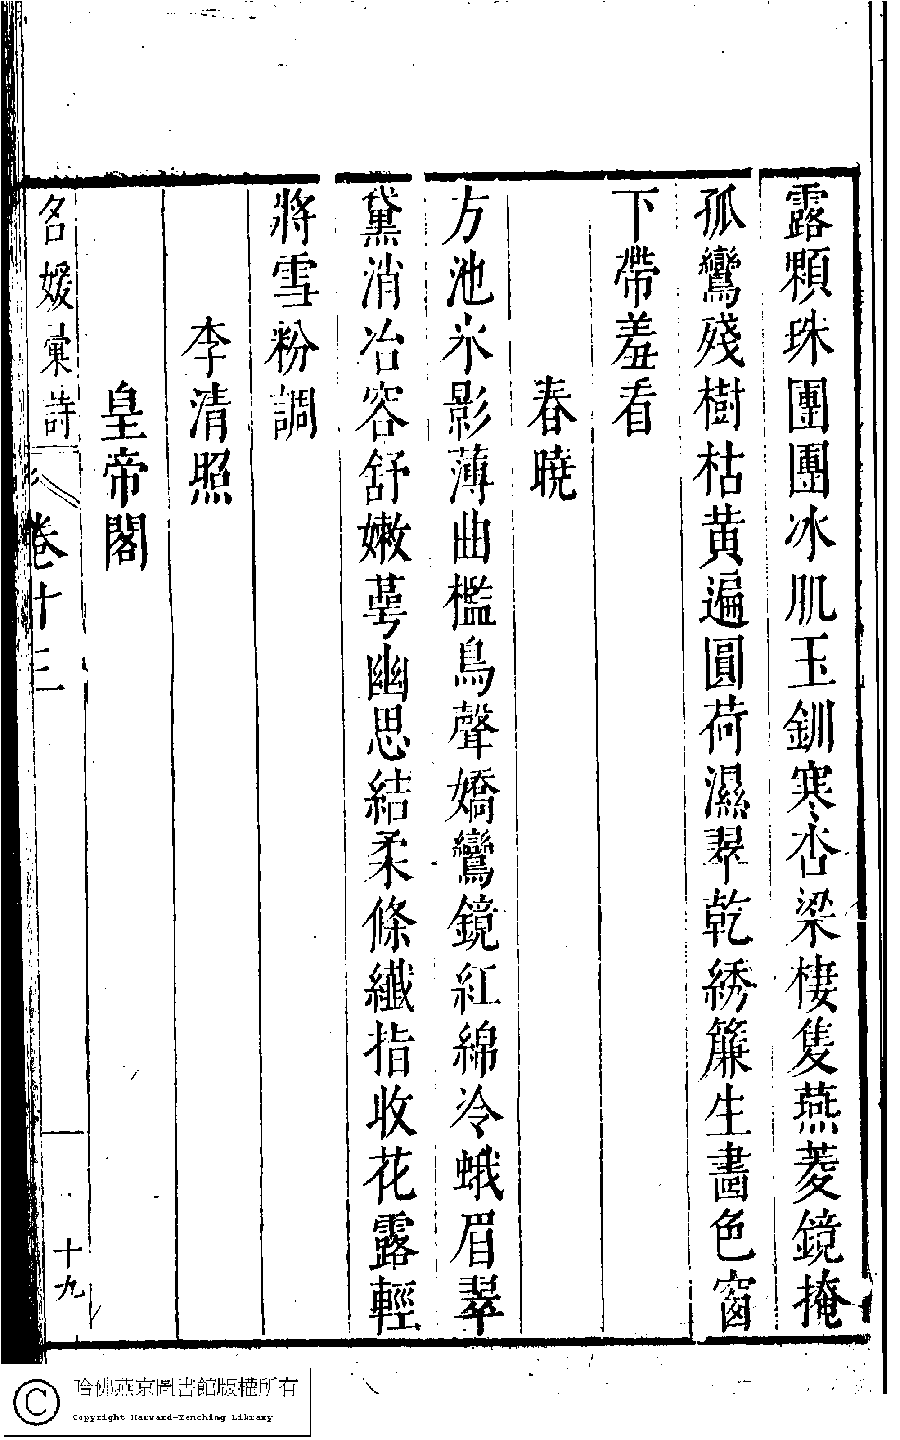 露顆珠團團冰肌玉釧寒杏梁棲隻燕菱鏡掩
孤鸞殘樹枯黃遍圓荷濕翠乾綉簾生畫色窗
下帶羞看
春曉
方池氷影薄曲檻鳥聲嬌鸞鏡紅綿冷蛾眉翠
黛消冶容舒嫩萼幽思結柔條纖指收花露輕
將雪粉調
李清照
皇帝閣
名媛彙詩
卷十三
十九
哈佛燕京圖書館版權所有
Copyright Harvard-Yenching Library